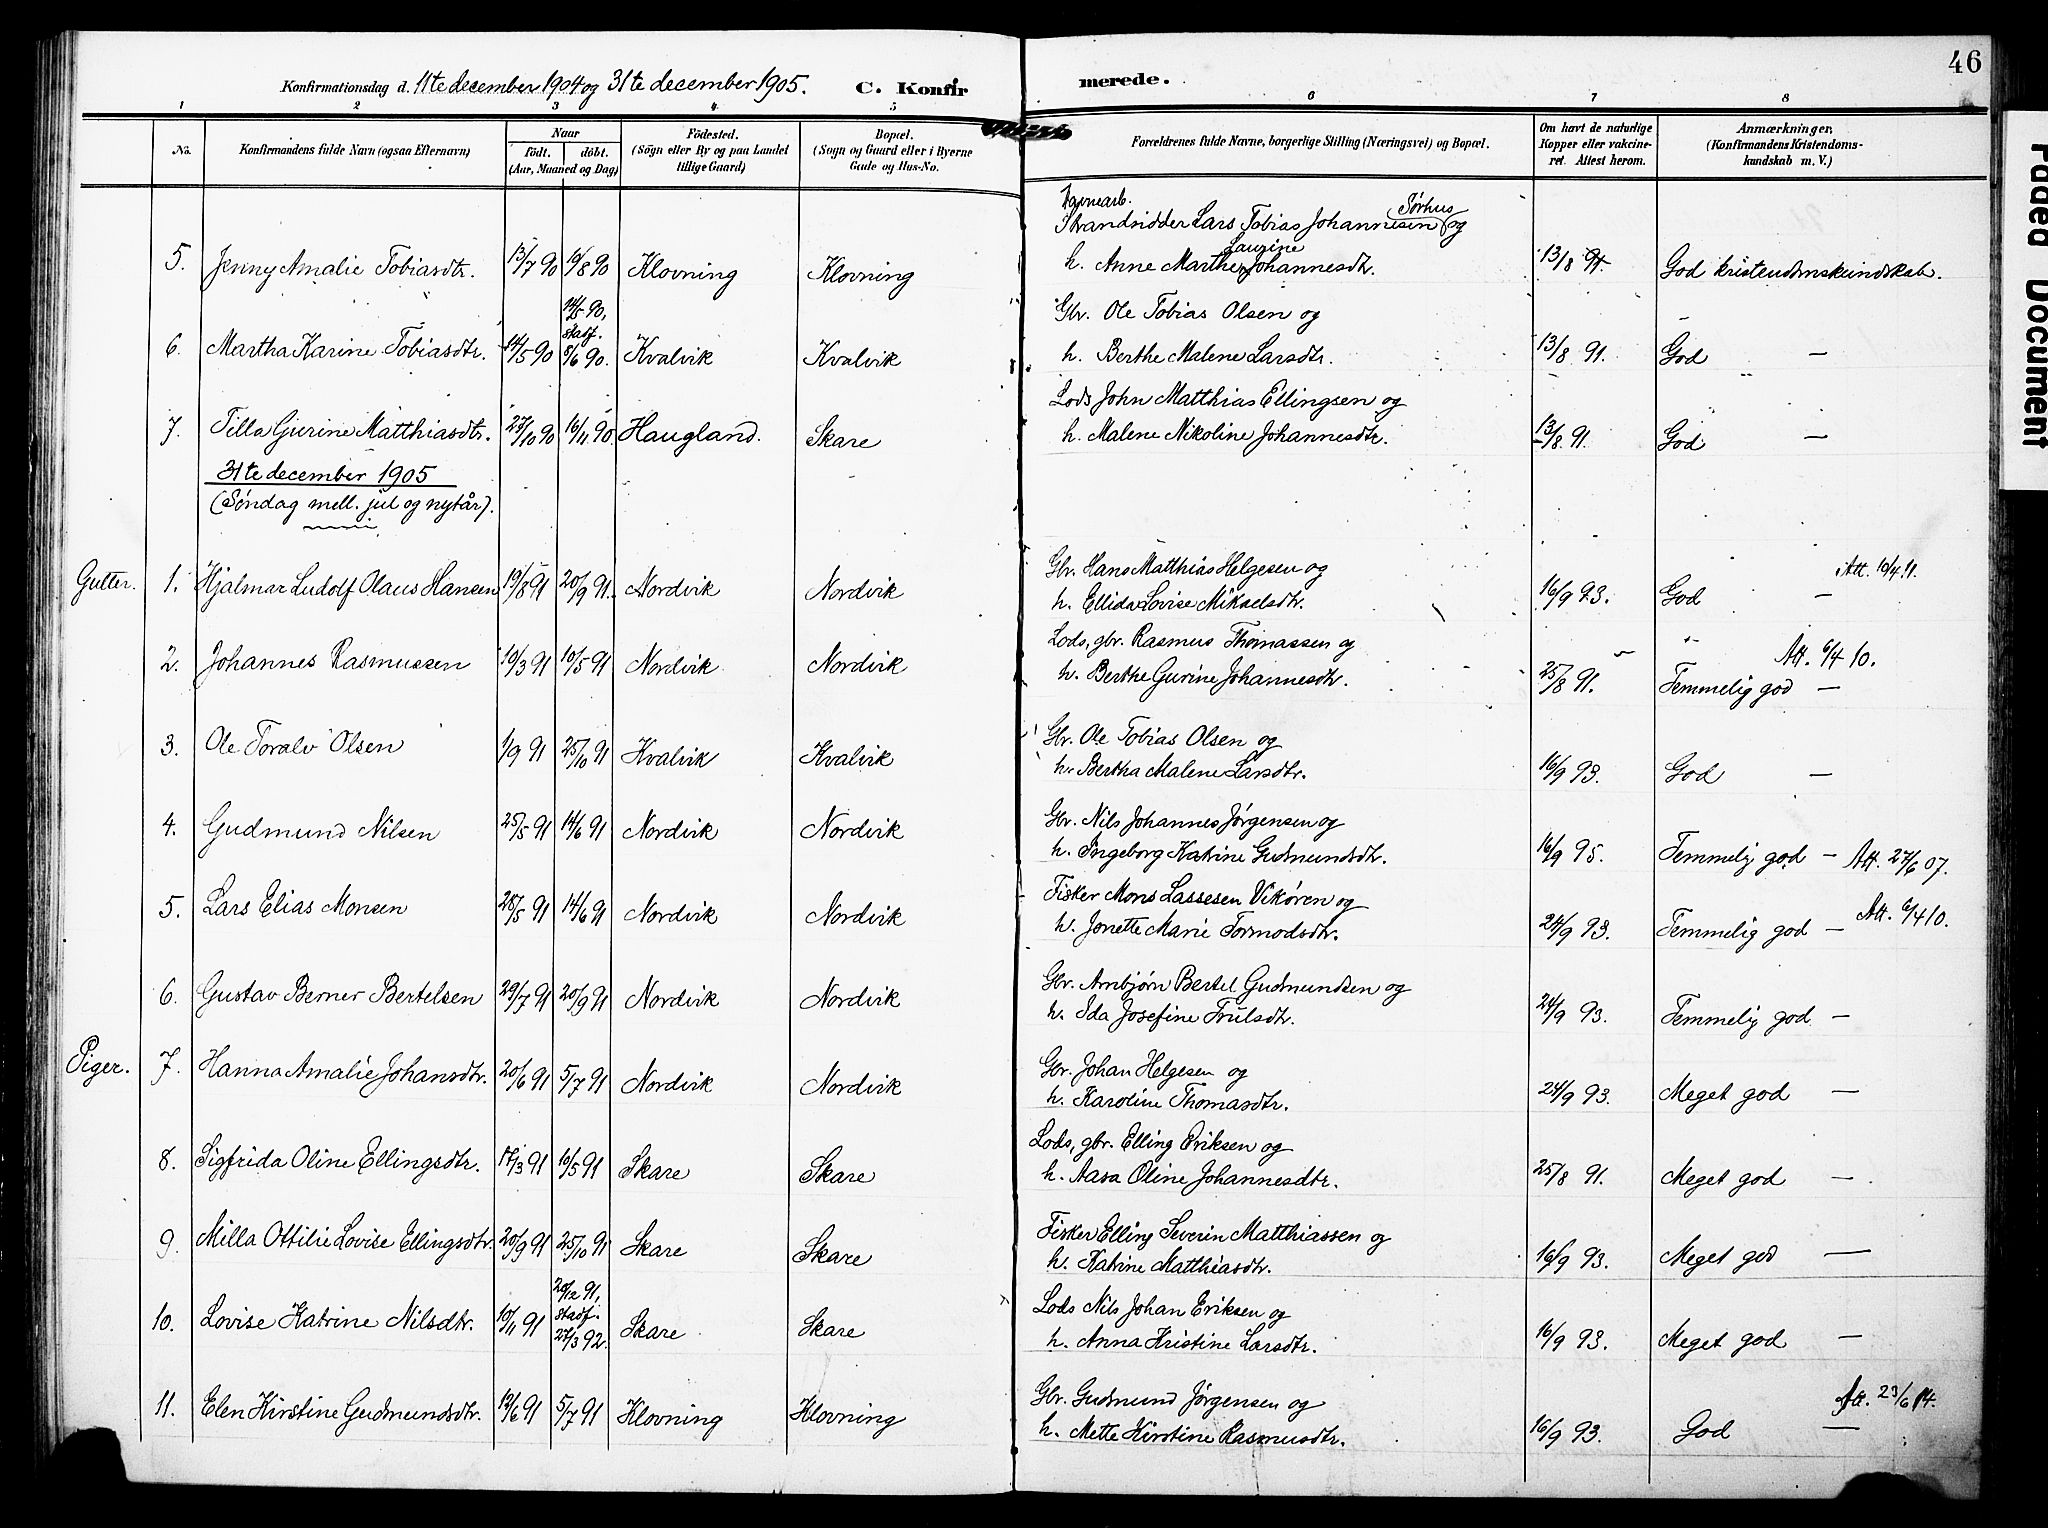 46
Konfirmationsdag d. 11te december 1904 og 31te december 1905. C. Konfir merede.
1 2 3 4 5 6 7 8
No.
Konfirmandens fulde Navn (ogsaa Efternavn)
Naar
født. døbt.
(Aar, Maaned og Dag)
Fødested.
(Sogn eller By og paa Landet
tillige Gaard)
Bopæl.
(Sogn og Gaard eller i Byerne
Gade og Hus-No.
Forældrenes fulde Navne, borgerlige Stilling (Næringsvei) og Bopæl.
Om havt de naturlige
Kopper eller vakcine-
ret. Attest herom.
Anmærkninger,
(Konfirmandens Kristendoms-
kundskab m. V.)
Havnearb. Sørhus
Strandsidder Lars Tobias Johannesen og
5. Jenny Amalie Tobiasdtr. 13/7 90 10/8 90 Klovning Klovning h. Anne Marthe Laurine Johannesdtr. 13/8 91. God kristendomskundskab.
14/5 90, Gbr. Ole Tobias Olsen og
stadf.
6. Martha Karine Tobiasdtr. 14/5 90 8/6 90. Kvalvik Kvalvik h. Berthe Malene Larsdtr. 13/8 91. God —
Lods John Matthias Ellingsen og
7. Tilla Gjurine Matthiasdtr. 23/10 90 16/11 90. Haugland. Skare h. Malene Nikoline Johannesdtr. 13/8 91. God —
31te december 1905
(Søndag mell. jul og nytår).
Gbr. Hans Matthias Helgesen og Att. 10/4 11.
Gutter. 1. Hjalmar Ludolf Olaus Hansen 19/8 91 20/9 91. Nordvik Nordvik h. Ellida Lovise Mikaelsdtr. 16/9 93. God —
Lods, gbr. Rasmus Thomassen og Att. 6/4 10.
2. Johannes Rasmussen 19/3 91 10/5 91 Nordvik Nordvik h. Berthe Gurine Johannesdtr. 25/8 91. Temmelig god —
Gbr. Ole Tobias Olsen og
3. Ole Toralv Olsen 1/9 91 25/10 91 Kvalvik Kvalvik h. Bertha Malene Larsdtr. 16/9 93. God —
Gbr. Nils Johannes Jørgensen og
4. Gudmund Nilsen 25/5 91 14/6 91 Nordvik Nordvik h. Ingeborg Katrine Gudmundsdtr. 16/9 95. Temmelig god — Att. 27/6 07.
Fisker Mons Lassesen Vikøren og Att. 6/4 10.
5. Lars Elias Monsen 28/5 91 14/6 91 Nordvik Nordvik h. Jonette Marie Tormodsdtr. 24/9 93. Temmelig god —
Gbr. Arnbjørn Bertel Gudmundsen og
6. Gustav Berner Bertelsen 29/7 91 20/9 91 Nordvik Nordvik h. Ida Josefine Trulsdtr. 24/9 93. Temmelig god —
Gbr. Johan Helgesen og
Piger. 7. Hanna Amalie Johansdtr. 20/6 91 5/7 91 Nordvik Nordvik h. Karoline Thomasdtr. 24/9 93. Meget god —
Lods, gbr. Elling Eriksen og
8. Sigfrida Oline Ellingsdtr. 17/3 91 16/5 91 Skare Skare h. Aasa Oline Johannesdtr. 25/8 91. Meget god —
Fisker Elling Severin Matthiassen og
9. Milla Ottilie Lovise Ellingsdtr. 20/9 91 25/10 91 Skare Skare h. Katrine Matthiasdtr. 16/9 93. Meget god —
20/12 91, Lods Nils Johan Eriksen og
stadf.
10. Lovise Katrine Nilsdtr. 10/11 91 27/3 92. Skare Skare h. Anna Kristine Larsdtr. 16/9 93. Meget god —
Gbr. Gudmund Jørgensen og Att. 23/6 14.
11. Elen Kirstine Gudmundsdtr. 13/6 91 5/7 91 Klovning Klovning h. Mette Kirstine Rasmusdtr. 16/9 93. God —
Paged Document